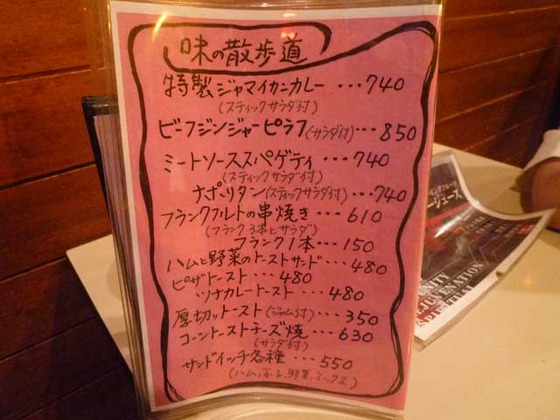 味の散歩道
特製ジャマイカンカレー・・・740
(スティックサラダ付)
ビーフジンジャーピラフ(サラダ付)・・・850
ミートソーススパゲティ・・・740
(スティックサラダ付)
ナポリタン(スティックサラダ付)・・・740
フランクフルトの串焼き・・・610
(フランク3本とサラダ)
フランク1本・・・150
ハムと野菜のトーストサンド・・・480
ピザトースト・・・480
ツナカレートースト・・・480
厚切りトースト(ジャム付)・・・350
コーントーストチーズ焼・・・630
(サラダ付)
サンドイッチ各種・・・550
(ハム、玉子、野菜、ミックス)
ージュース
NITY
EJUVENATION